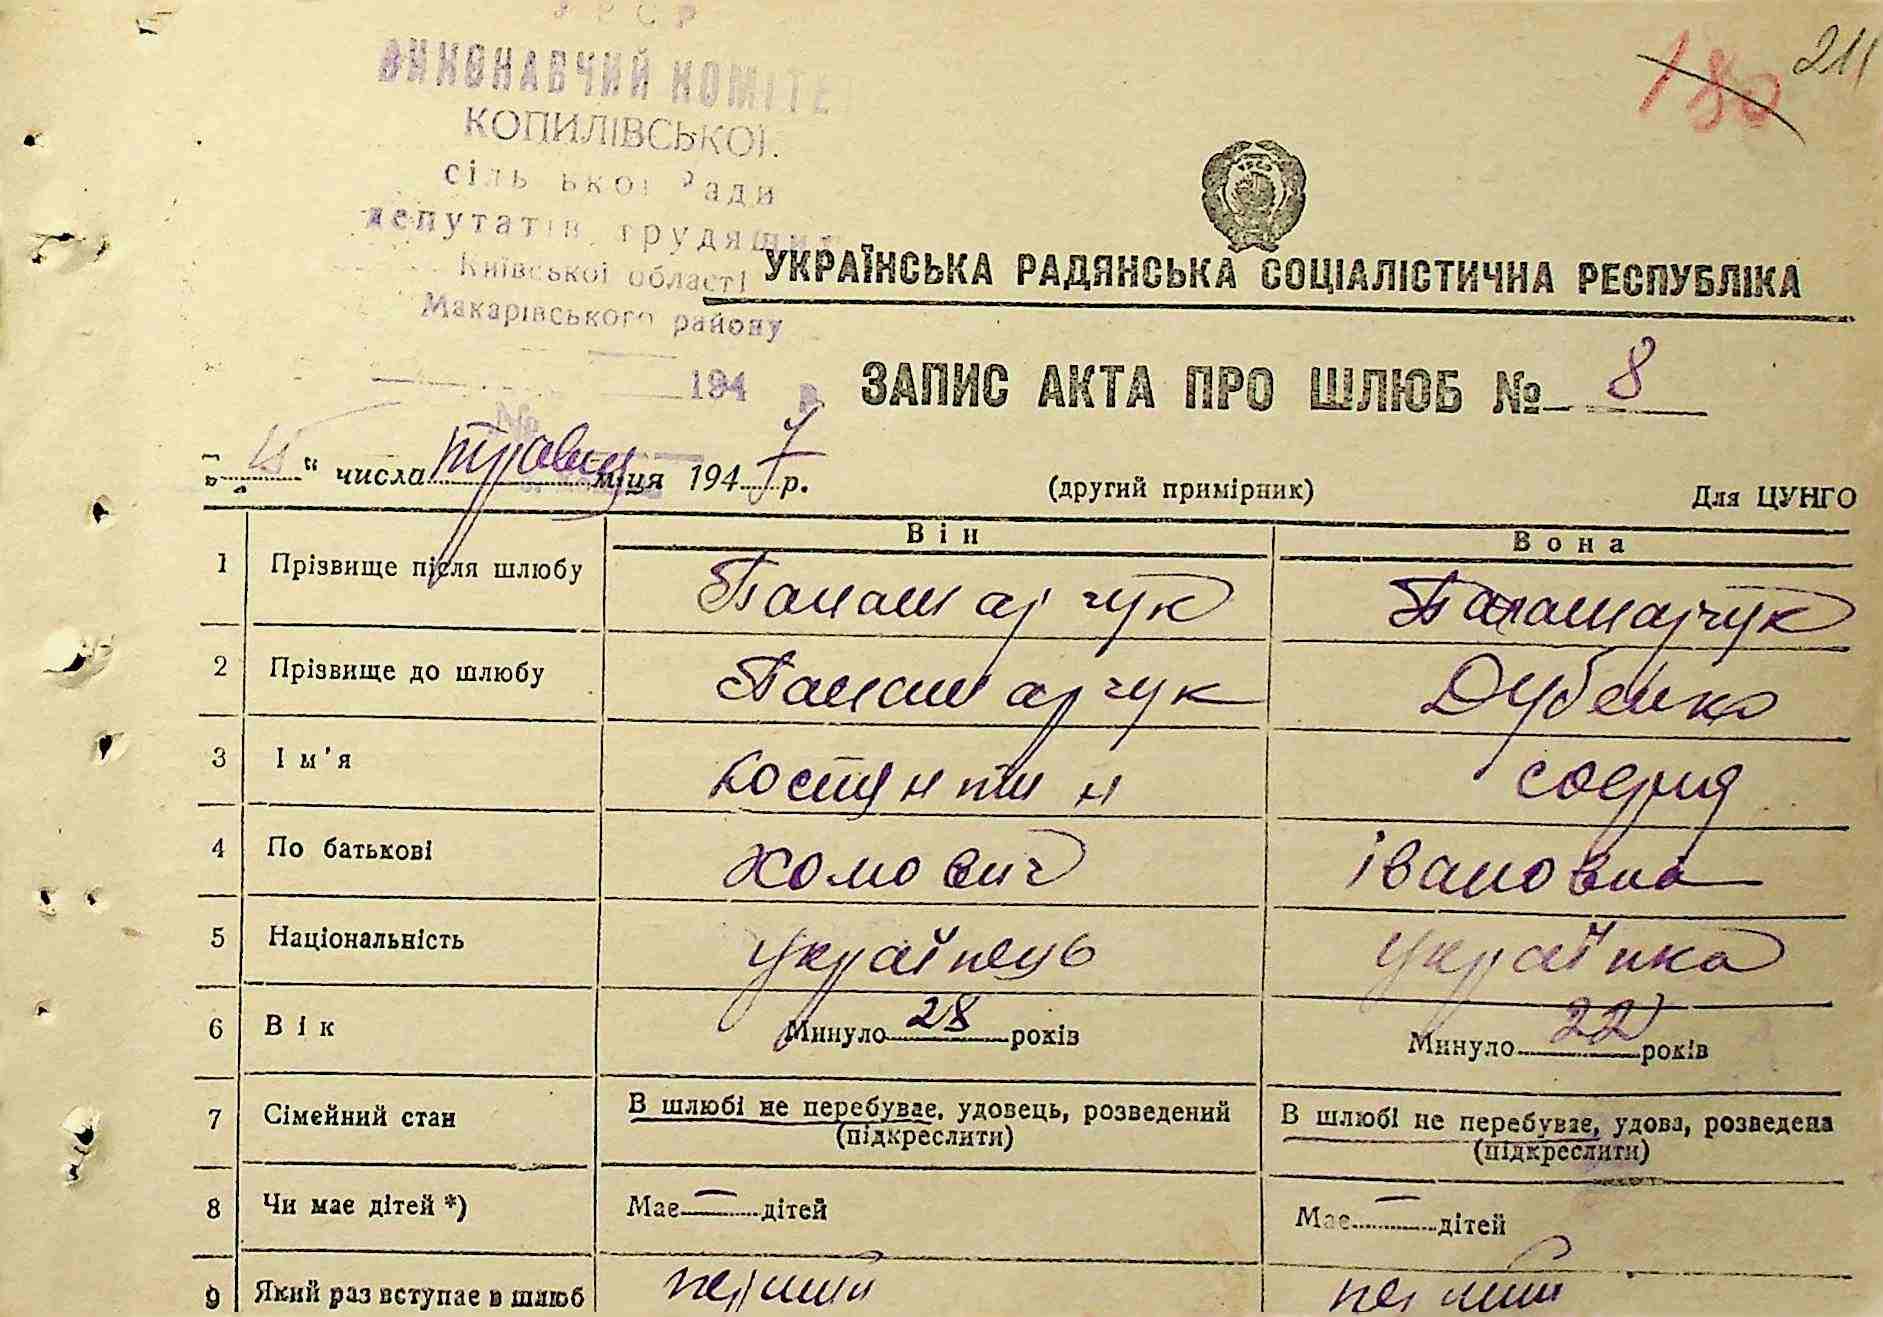 УРСР
211
180
ВИКОНАВЧИЙ КОМІТЕ
КОПИЛІВСЬКОЇ
сільської Ради
депутатів трудящих
Київської області
Макарівського району
194 р.
№
УКРАЇНСЬКА РАДЯНСЬКА СОЦІАЛІСТИЧНА РЕСПУБЛІКА
ЗАПИС АКТА ПРО ШЛЮБ № 8
"15" числа травня м-ця 1947 р. (другий примірник) Для ЦУНГО
Він Вона
1 Прізвище після шлюбу Панамарчук Панамарчук
2 Прізвище до шлюбу Панамарчук Дубенко
3 Ім'я Костянтин София
4 По батькові Хомович Івановна
5 Національність Українець Українка
6 Вік Минуло 28 років Минуло 22 років
7 Сімейний стан В шлюбі не перебуває, удовець, розведений (підкреслити) В шлюбі не перебуває, удова, розведена (підкреслити)
8 Чи має дітей *) Має — дітей Має — дітей
9 Який раз вступає в шлюб перший перший